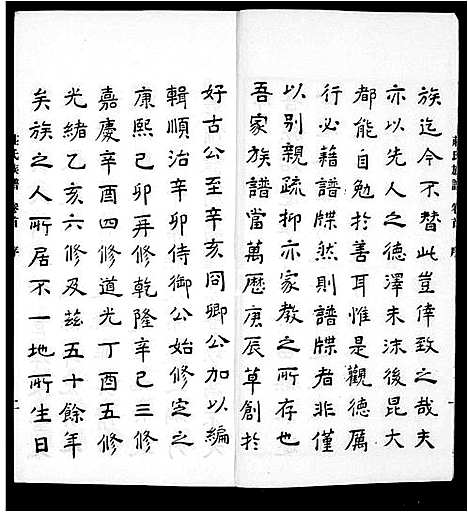 莊氏族譜 卷首 序 一
族迄今不替此豈倖致之哉夫
亦以先人之德澤未沫後昆大
都能自勉於善耳惟是觀德厲
行必藉譜牒然則譜牒者非僅
以別親疏抑亦家教之所存也
吾家族譜當萬曆庚辰草創於
好古公至辛亥同卿公加以編
輯順治辛卯侍御公始修定之
康熙己卯再修乾隆辛巳三修
嘉慶辛酉四修道光丁酉五修
光緒乙亥六修及茲五十餘年
矣族之人所居不一地所生日
莊氏族譜 卷首 序 二